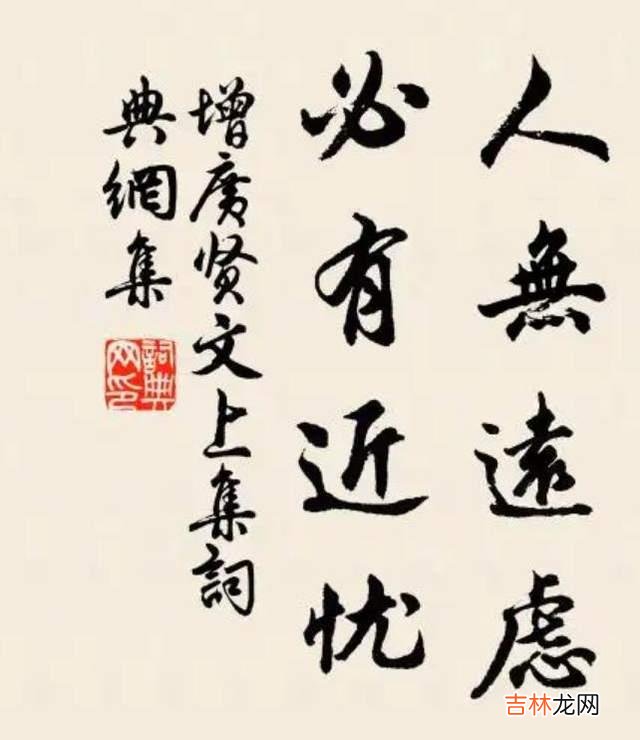 人無遠慮
必有近忧
增廣贤文上集詞
典網集
詞典网印
吉林龙网